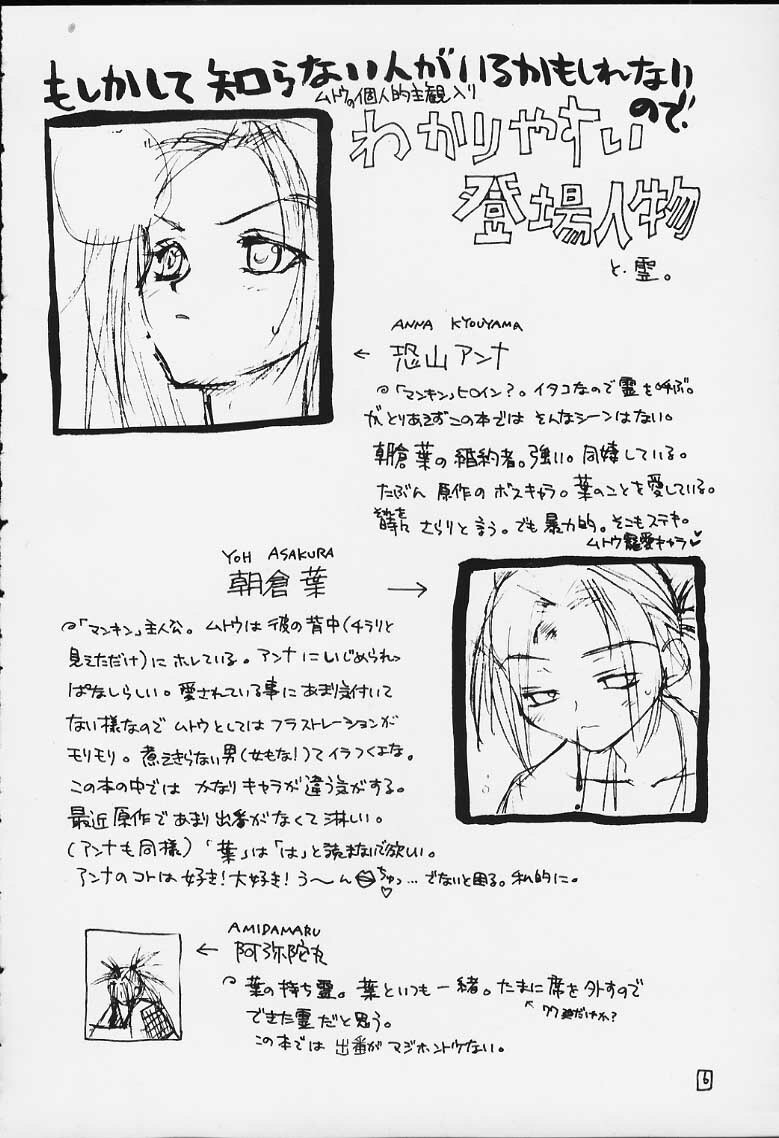 もしかして知らない人がいるかもしれない
ので
ムトウの個人的主観入り
わかりやすい
登場人物
と・霊。
ANNA KYOUYAMA
← 恐山アンナ
「マンキン」ヒロイン?。イタコなので霊を呼ぶ。
がとりあえずこの本では そんなシーンはない。
朝倉葉の婚約者。強い。同棲している。
たぶん 原作のボスキャラ。葉のことを愛している。
それを
時に さらりと言う。でも暴力的。そこもステキ。
ムトウ寵愛キャラ♥
YOH ASAKURA
朝倉 葉 →
「マンキン」主人公。ムトウは彼の背中(チラリと
見えただけ)にホレている。アンナにいじめられっ
ぱなしらしい。愛されている事にあまり気付いて
ない様なので ムトウとしては フラストレーションが
モリモリ。煮えきらない男(女もな!)てイラつくよな。
この本の中では かなりキャラが違う気がする。
最近原作であまり出番がなくて淋しい。
(アンナも同様)「葉」は「は」と読まないで欲しい。
アンナのコトは好き!大好き!う〜ん ちゅっ♡…でないと困る。私的に。
AMIDAMARU
← 阿弥陀丸
葉の持ち霊。葉といつも一緒。たまに席を外すので
できた霊だと思う。
この本では 出番がマジホントウない。
6